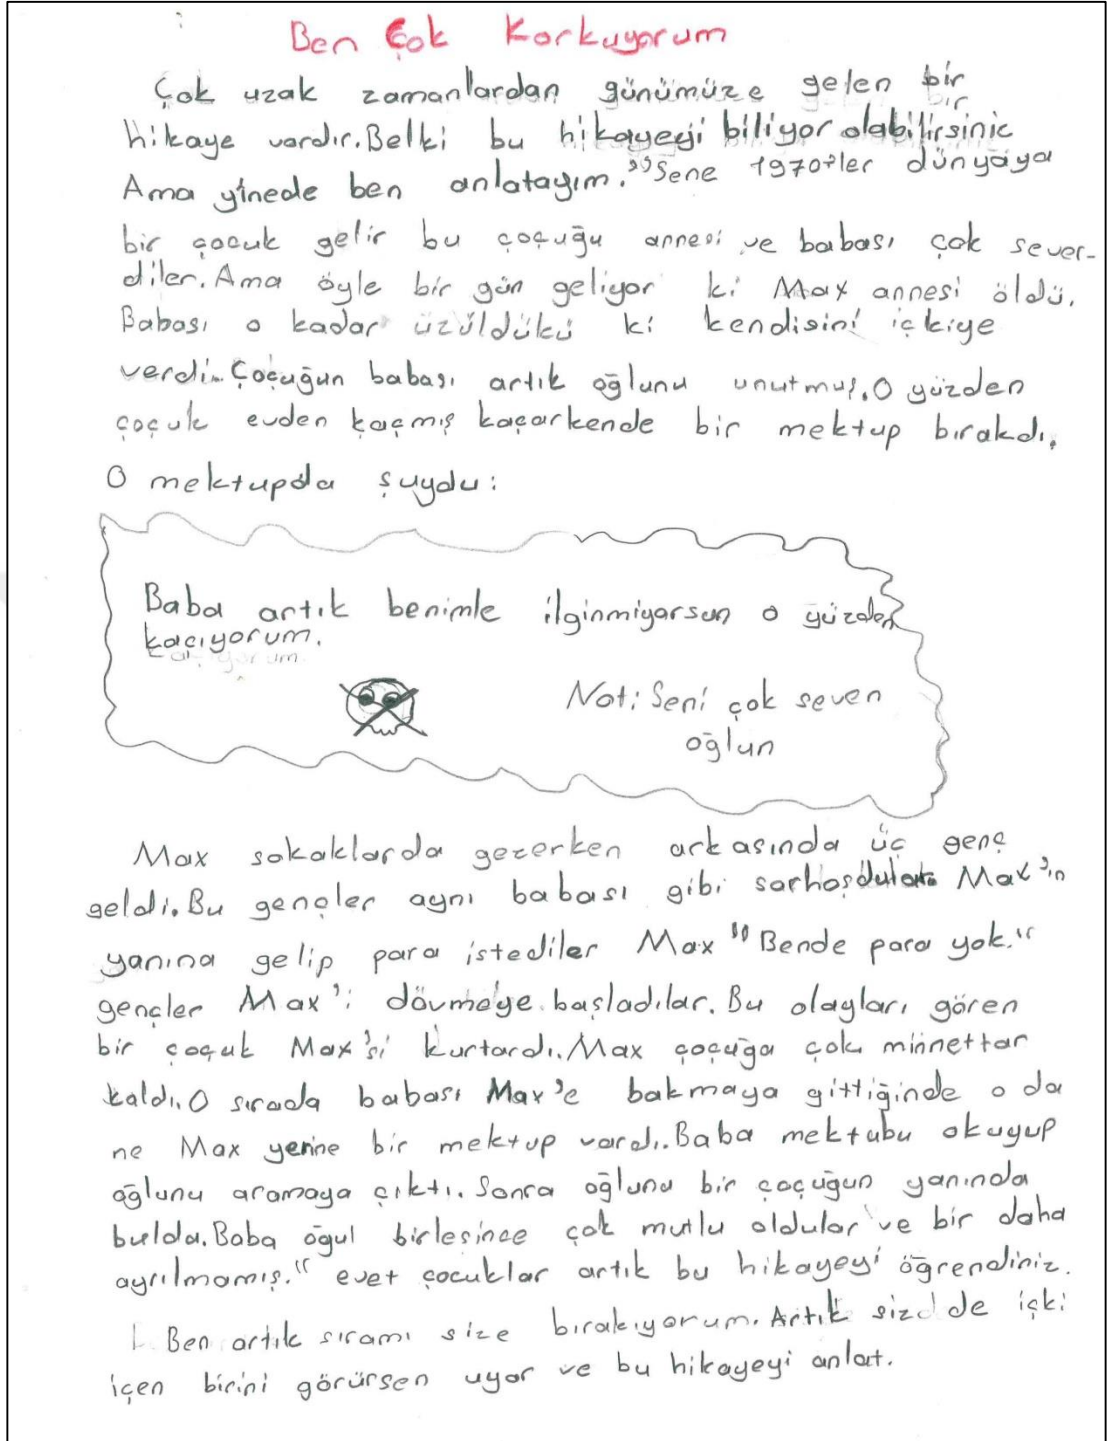 Ben Çok Korkuyorum
Çok uzak zamanlardan günümüze gelen bir
hikaye vardır. Belki bu hikayeyi biliyor olabilirsinic
Ama yinede ben anlatayım. "Sene 1970'ler dünyaya
bir çocuk gelir bu çoçuğu annesi ve babası çok sever-
diler. Ama öyle bir gün geliyor ki Max annesi öldü.
Babası o kadar üzüldükü ki kendisini içkiye
verdi. Çoçuğun babası artık oğlunu unutmuş. O yüzden
çoçuk evden kaçmış kaçarkende bir mektup bırakdı.
O mektupda şuydu:
Baba artık benimle ilginmiyorsun o yüzden
kaçıyorum.
Not: Seni çok seven
oğlun
Max sokaklarda gezerken arkasında üç genç
geldi. Bu gençler aynı babası gibi sarhoşdular Max'ın
yanına gelip para istediler Max "Bende para yok."
gençler Max'i dövmeye başladılar. Bu olayları gören
bir çoçuk Max'si kurtardı. Max çoçuğa çok minnettar
kaldı. O sırada babası Max'e bakmaya gittiğinde o da
ne Max yerine bir mektup vardı. Baba mektubu okuyup
oğlunu aramaya çıktı. Sonra oğlunu bir çoçuğun yanında
buldu. Baba oğul birleşince çok mutlu oldular ve bir daha
ayrılmamış." evet çocuklar artık bu hikayeyi öğrendiniz.
Ben artık sıramı size bırakıyorum. Artık sizdde içki
içen birini görürsen uyar ve bu hikayeyi anlat.